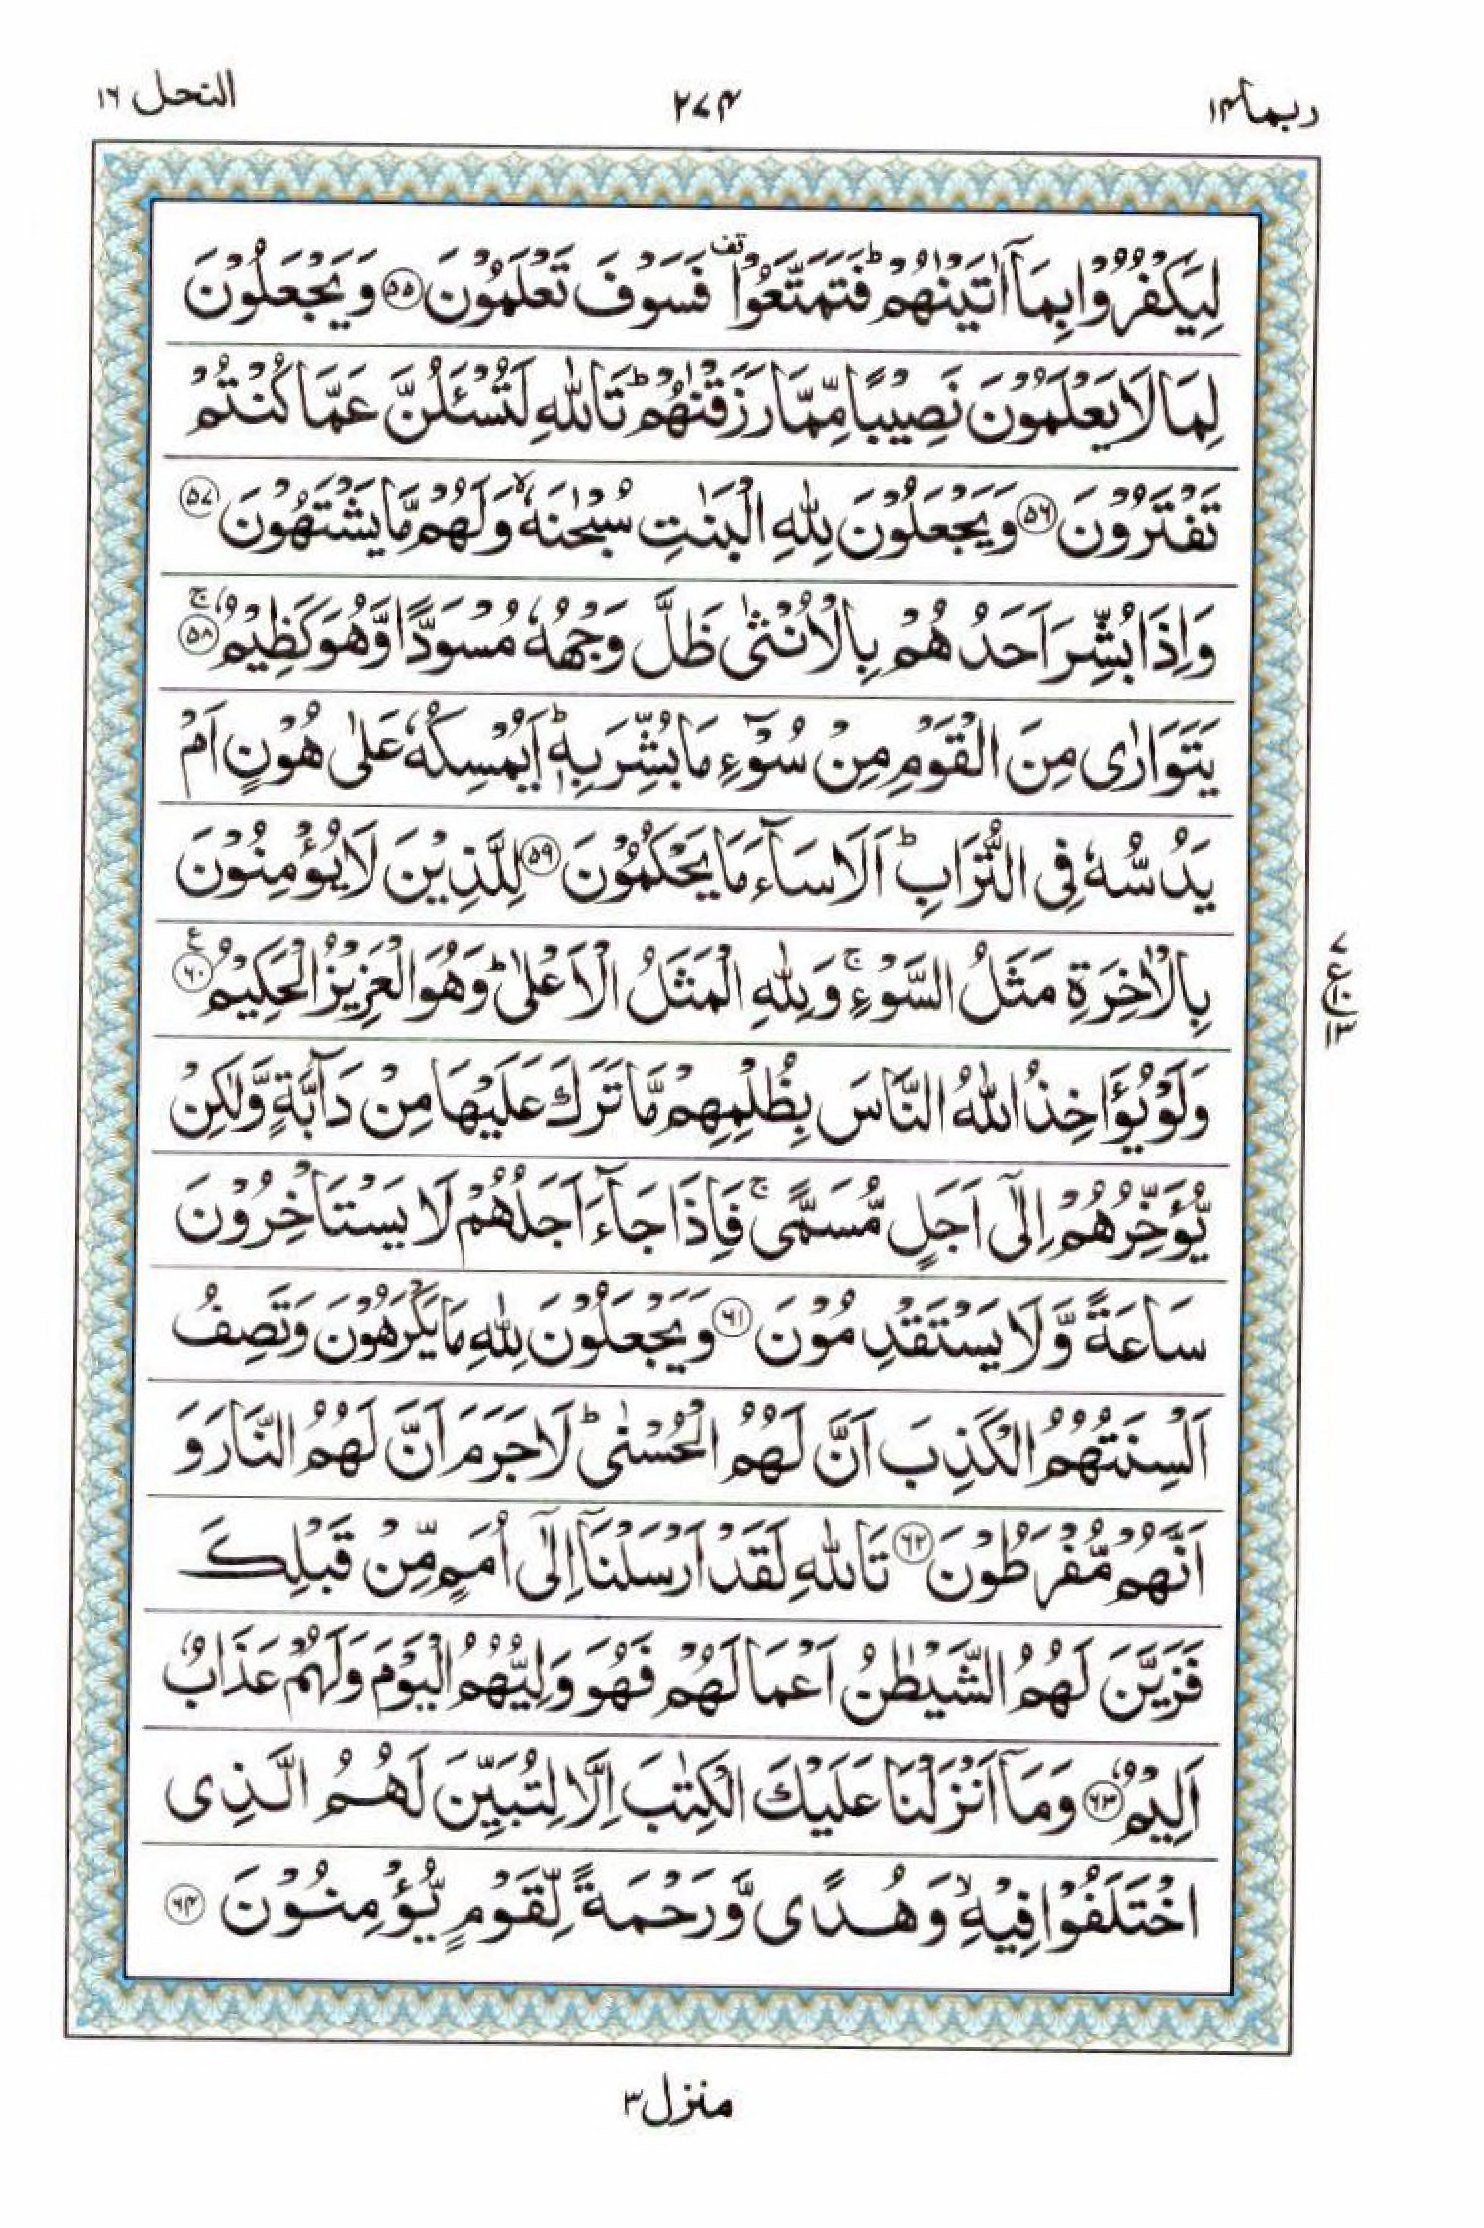 النحل ١٦ ٢٧٤ ربما ١٤
لِيَكْفُرُوْا بِمَاۤ اٰتَيْنٰهُمْ ؕ فَتَمَتَّعُوْا قف فَسَوْفَ تَعْلَمُوْنَ ۝٥٥ وَيَجْعَلُوْنَ
لِمَا لَا يَعْلَمُوْنَ نَصِيْبًا مِّمَّا رَزَقْنٰهُمْ ؕ تَاللّٰهِ لَتُسْـَٔلُنَّ عَمَّا كُنْتُمْ
تَفْتَرُوْنَ ۝٥٦ وَيَجْعَلُوْنَ لِلّٰهِ الْبَنٰتِ سُبْحٰنَهٗ ۙ وَلَهُمْ مَّا يَشْتَهُوْنَ ۝٥٧
وَاِذَا بُشِّرَ اَحَدُهُمْ بِالْاُنْثٰى ظَلَّ وَجْهُهٗ مُسْوَدًّا وَّهُوَ كَظِيْمٌ ۝٥٨ ۚ
يَتَوَارٰى مِنَ الْقَوْمِ مِنْ سُوْٓءِ مَا بُشِّرَ بِهٖ ؕ اَيُمْسِكُهٗ عَلٰى هُوْنٍ اَمْ
يَدُسُّهٗ فِى التُّرَابِ ؕ اَلَا سَآءَ مَا يَحْكُمُوْنَ ۝٥٩ لِلَّذِيْنَ لَا يُؤْمِنُوْنَ
بِالْاٰخِرَةِ مَثَلُ السَّوْءِ ۚ وَلِلّٰهِ الْمَثَلُ الْاَعْلٰى ؕ وَهُوَ الْعَزِيْزُ الْحَكِيْمُ ۝٦٠ ع
٧ ع ١٠ ١٣
وَلَوْ يُؤَاخِذُ اللّٰهُ النَّاسَ بِظُلْمِهِمْ مَّا تَرَكَ عَلَيْهَا مِنْ دَآبَّةٍ وَّلٰكِنْ
يُّؤَخِّرُهُمْ اِلٰٓى اَجَلٍ مُّسَمًّى ۚ فَاِذَا جَآءَ اَجَلُهُمْ لَا يَسْتَاْخِرُوْنَ
سَاعَةً وَّلَا يَسْتَقْدِمُوْنَ ۝٦١ وَيَجْعَلُوْنَ لِلّٰهِ مَا يَكْرَهُوْنَ وَتَصِفُ
اَلْسِنَتُهُمُ الْكَذِبَ اَنَّ لَهُمُ الْحُسْنٰى ؕ لَا جَرَمَ اَنَّ لَهُمُ النَّارَ وَ
اَنَّهُمْ مُّفْرَطُوْنَ ۝٦٢ تَاللّٰهِ لَقَدْ اَرْسَلْنَاۤ اِلٰٓى اُمَمٍ مِّنْ قَبْلِكَ
فَزَيَّنَ لَهُمُ الشَّيْطٰنُ اَعْمَالَهُمْ فَهُوَ وَلِيُّهُمُ الْيَوْمَ وَلَهُمْ عَذَابٌ
اَلِيْمٌ ۝٦٣ وَمَاۤ اَنْزَلْنَا عَلَيْكَ الْكِتٰبَ اِلَّا لِتُبَيِّنَ لَهُمُ الَّذِى
اخْتَلَفُوْا فِيْهِ ۙ وَهُدًى وَّرَحْمَةً لِّقَوْمٍ يُّؤْمِنُوْنَ ۝٦٤
منزل ٣